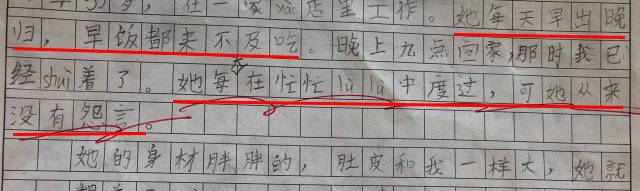 岁，在一家店里工作。她每天早出晚
归，早饭都来不及吃。晚上九点回家，那时我已
经shui着了。她每天在忙忙lu lu中度过，可她从来
没有怨言。
她的身材胖胖的，肚皮和我一样大，她就